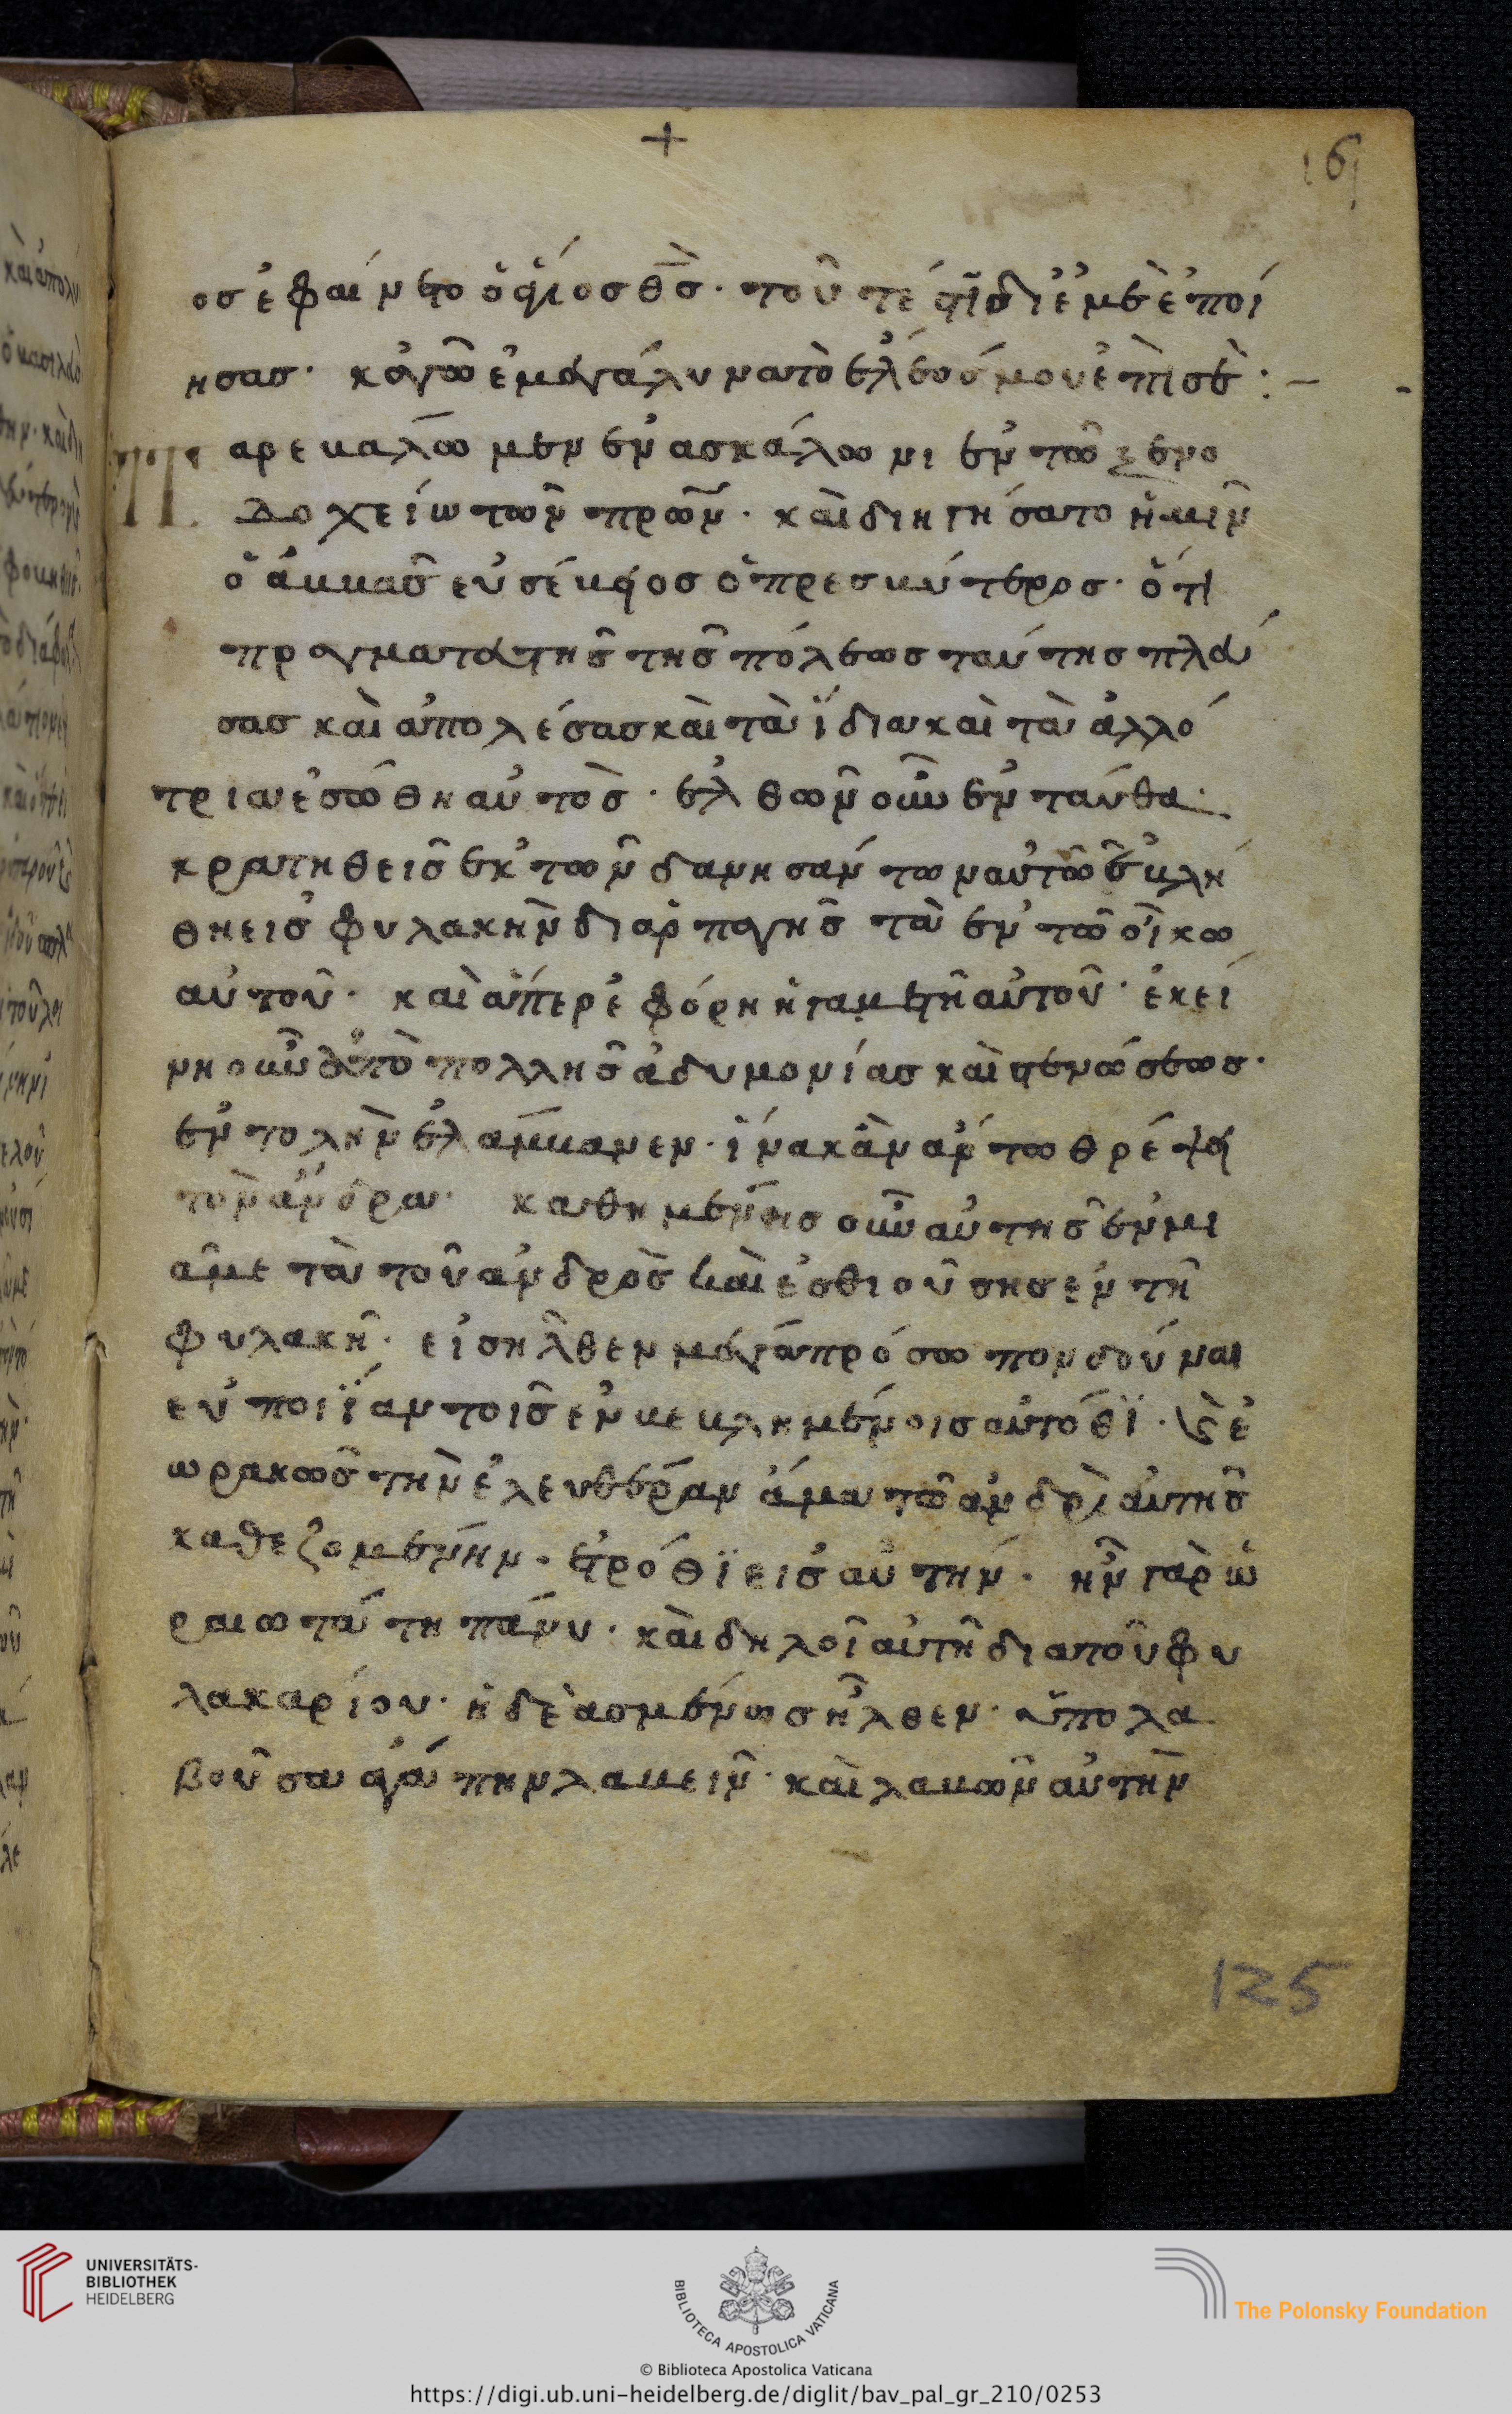 +
161
οσ ἐφαίνετο ὁ ἅγιοσ θσ̅· τοῦτέ τι δι ἐμὲ ἐποί
ησασ· καγὼ ἐμεγάλυνα τὸ ἔλεόσ μου ἐπὶ σὲ :—
Παρεκαλῶμεν ἐν ασκάλωνι ἐν τῶ ξενο
δοχείω τῶν πρῶν· καὶ διηγήσατο ἡμῖν
ὁ ἀββᾶσ εὐσέβιοσ ὁ πρεσβύτεροσ· ὅτι
πραγματευτὴσ τῆσ πόλεωσ ταύτησ πλεύ
σασ καὶ ἀπολέσασ καὶ τὰ ἴδια καὶ τὰ ἀλλό
τρια ἐσώθη αὐτὸσ· ἐλθῶν οὖν ἐνταύθα·
κρατηθεὶσ ἐκ τῶν δανησάντων αὐτῶ ἐβλή
θη εισ φυλακὴν διαρπαγῆσ τὰ ἐν τῶ οἴκω
αὐτοῦ· καὶ ἅπερ ἐφόρη ἡ γαμετὴ αὐτοῦ· ἐκεί
νη οὖν ἀπὸ πολλῆσ ἀδυμονίασ καὶ στενώσεωσ·
ἐντολὴν ἐλάμβανεν· ἵνα κὰν ἄρτω θρέψη
τὸν ἄνδρα· καθημένησ οὖν αὐτῆσ ἐν μι
ᾶ μετὰ τοῦ ἀνδρὸσ καὶ ἐσθιούσησ ἐν τῆ
φυλακῆ· εἰσῆλθεν μέγα πρόσωπον δούναι
εὐποιΐαν τοῖσ ἐνβεβλημένοισ αὐτόθϊ· καὶ ἑ
ωρακὼσ τὴν ἐλευθέραν ἅμα τῶ ἀνδρὶ αὐτῆσ
καθεζομένην· ἐτρόθϊ εισ αὐτήν· ἦν γὰρ ὡ
ραιωτάτη πάνυ· καὶ δηλοῖ αὐτῆ δια τοῦ φυ
λακαρίου· ἡ δὲ ασμένωσ ἦλθεν· ὑπολα
βοῦσα ἀγάπην λαβεῖν· καὶ λαβῶν αὐτὴν
125
UNIVERSITÄTS-
BIBLIOTHEK
HEIDELBERG
BIBLIOTECA APOSTOLICA VATICANA
The Polonsky Foundation
© Biblioteca Apostolica Vaticana
https://digi.ub.uni-heidelberg.de/diglit/bav_pal_gr_210/0253